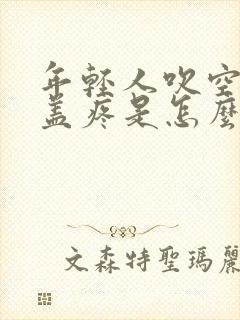 年轻人吹空
盖疼是怎麼
文森特聖瑪麗